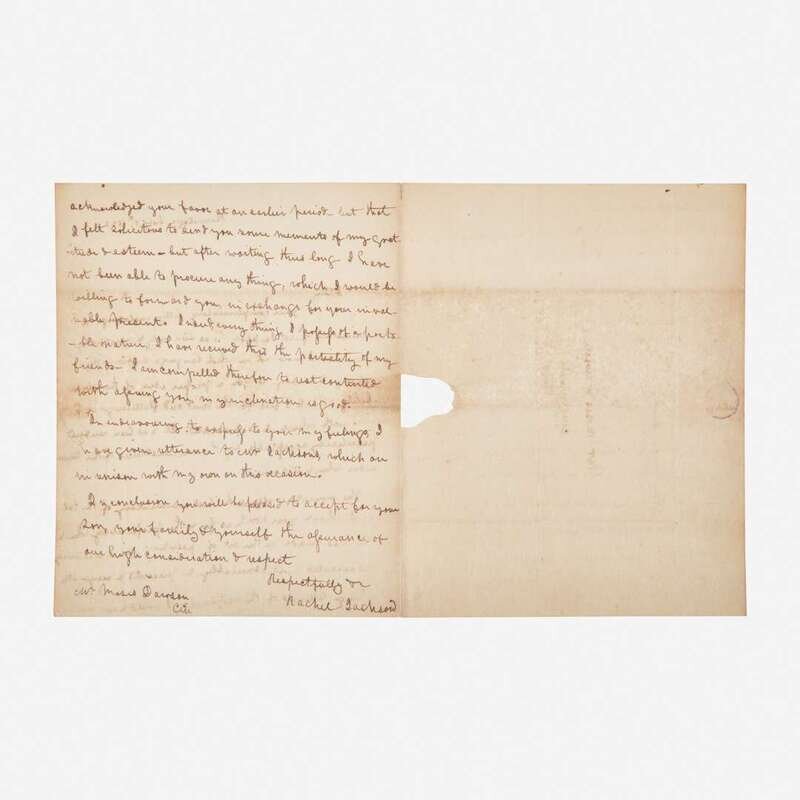 acknowledged your favor at an earlier period but that
I felt solicitous to send you some memento of my grat
itude & esteem – but after waiting thus long I have
not been able to procure any thing, which I would be
willing to forward you in exchange for your inval-
uable presents. Indeed every thing I possess of a porta
-ble nature I have received thro the partiality of my
friends – I am compelled therefore to rest contented
with assuring you, my inclination is good.
In endeavouring to express to you my feelings I
have given utterance to Mr Jacksons, which are
in unison with my own on this occasion.
In conclusion you will be pleased to accept for your
Son, your family & yourself the assurance of
our high consideration & respect
Respectfully &c
Rachel Jackson
Mr Moses Dawson